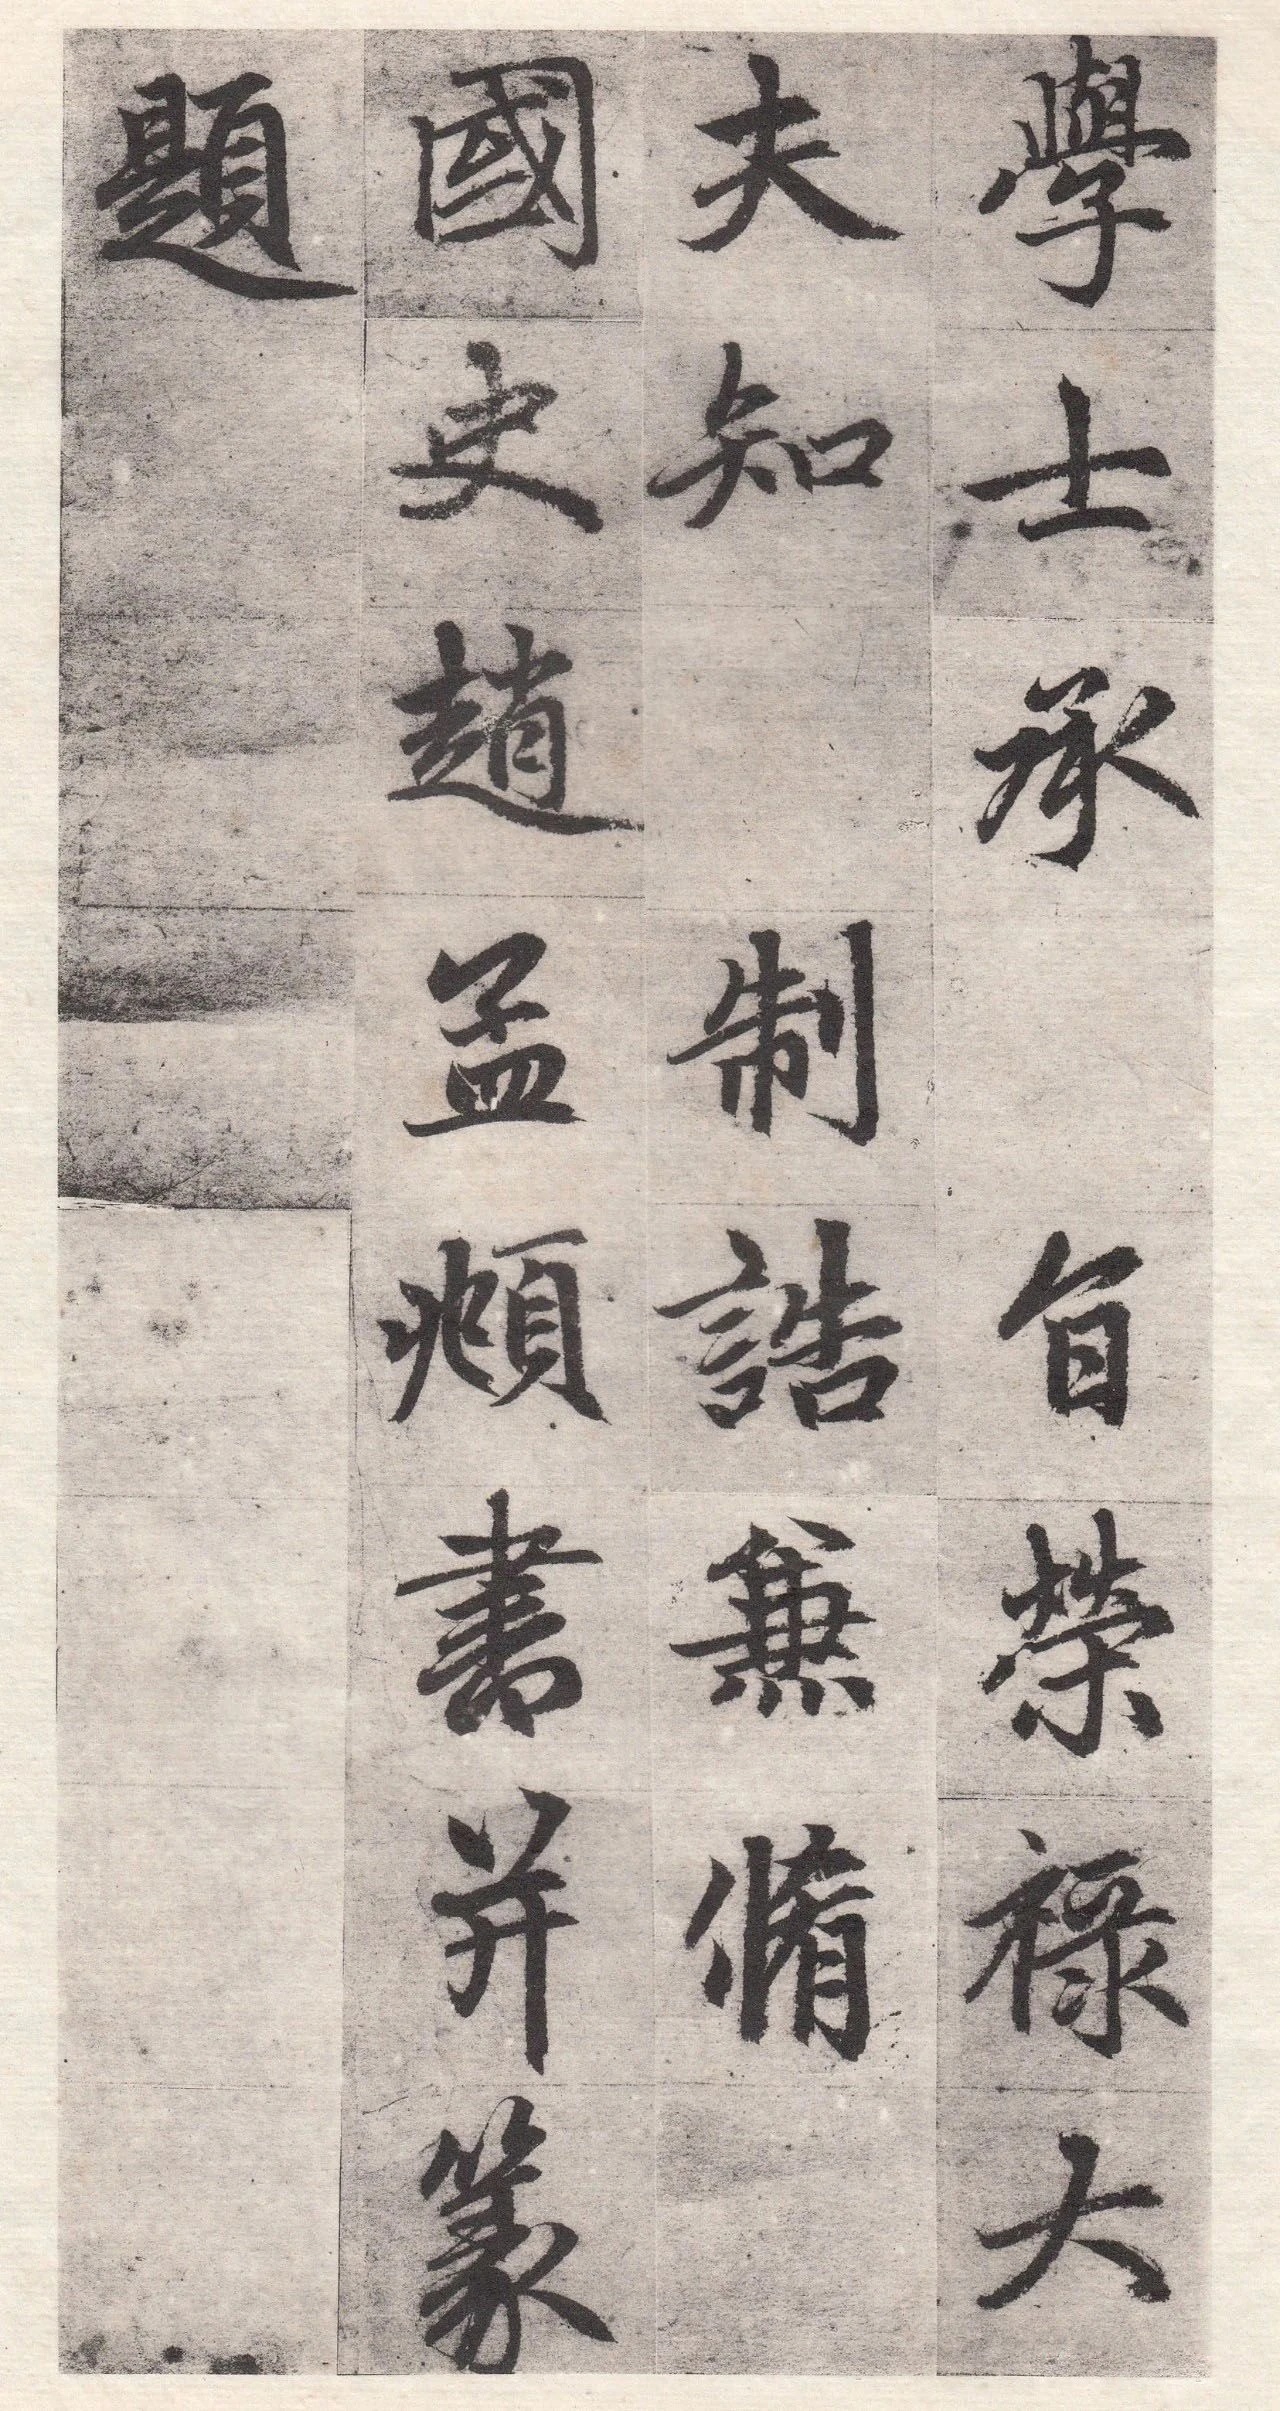 學士承　旨榮祿大
夫知　制誥兼脩
國史趙孟頫書并篆
題